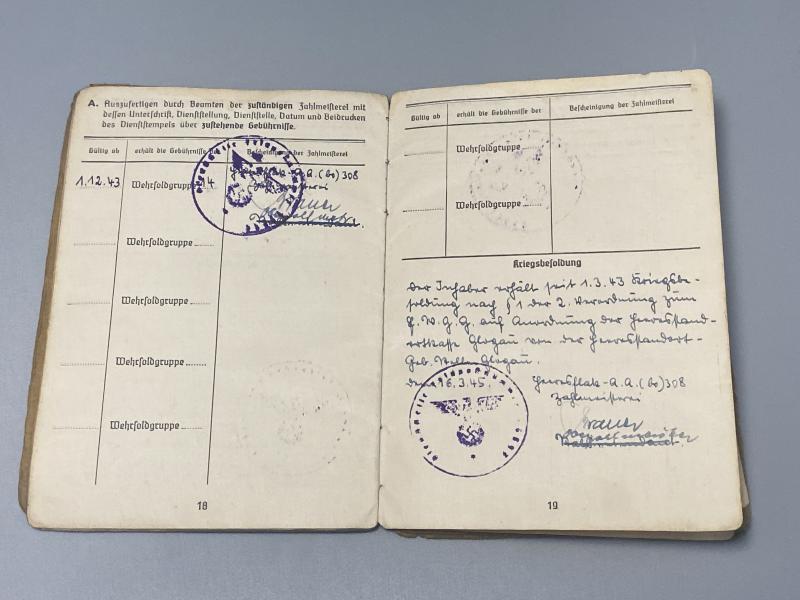 A. Auszufertigen durch Beamten der zuständigen Zahlmeisterei mit
dessen Unterschrift, Dienststellung, Dienststelle, Datum und Beidrücken
des Dienststempels über zustehende Gebührnisse.
Gültig ab
erhält die Gebührnisse der
Bescheinigung der Zahlmeisterei
1.12.43
Wehrsoldgruppe
Heeresflak-A.A.(bo)308
Zahlmeisterei
Wehrsoldgruppe
Wehrsoldgruppe
Wehrsoldgruppe
Wehrsoldgruppe
18
Gültig ab
erhält die Gebührnisse der
Bescheinigung der Zahlmeisterei
Wehrsoldgruppe
Wehrsoldgruppe
Kriegsbesoldung
Der Inhaber erhält seit 1.3.43 Kriegsbe-
soldung nach § 1 der 2. Verordnung zum
E.W.G.G. auf Anordnung der Heeresstand-
ortkasse Glogau von der Heeresstandort-
Geb. Stelle Glogau.
den 16.3.45.
Heeresflak-A.A.(bo)308
Zahlmeisterei
19